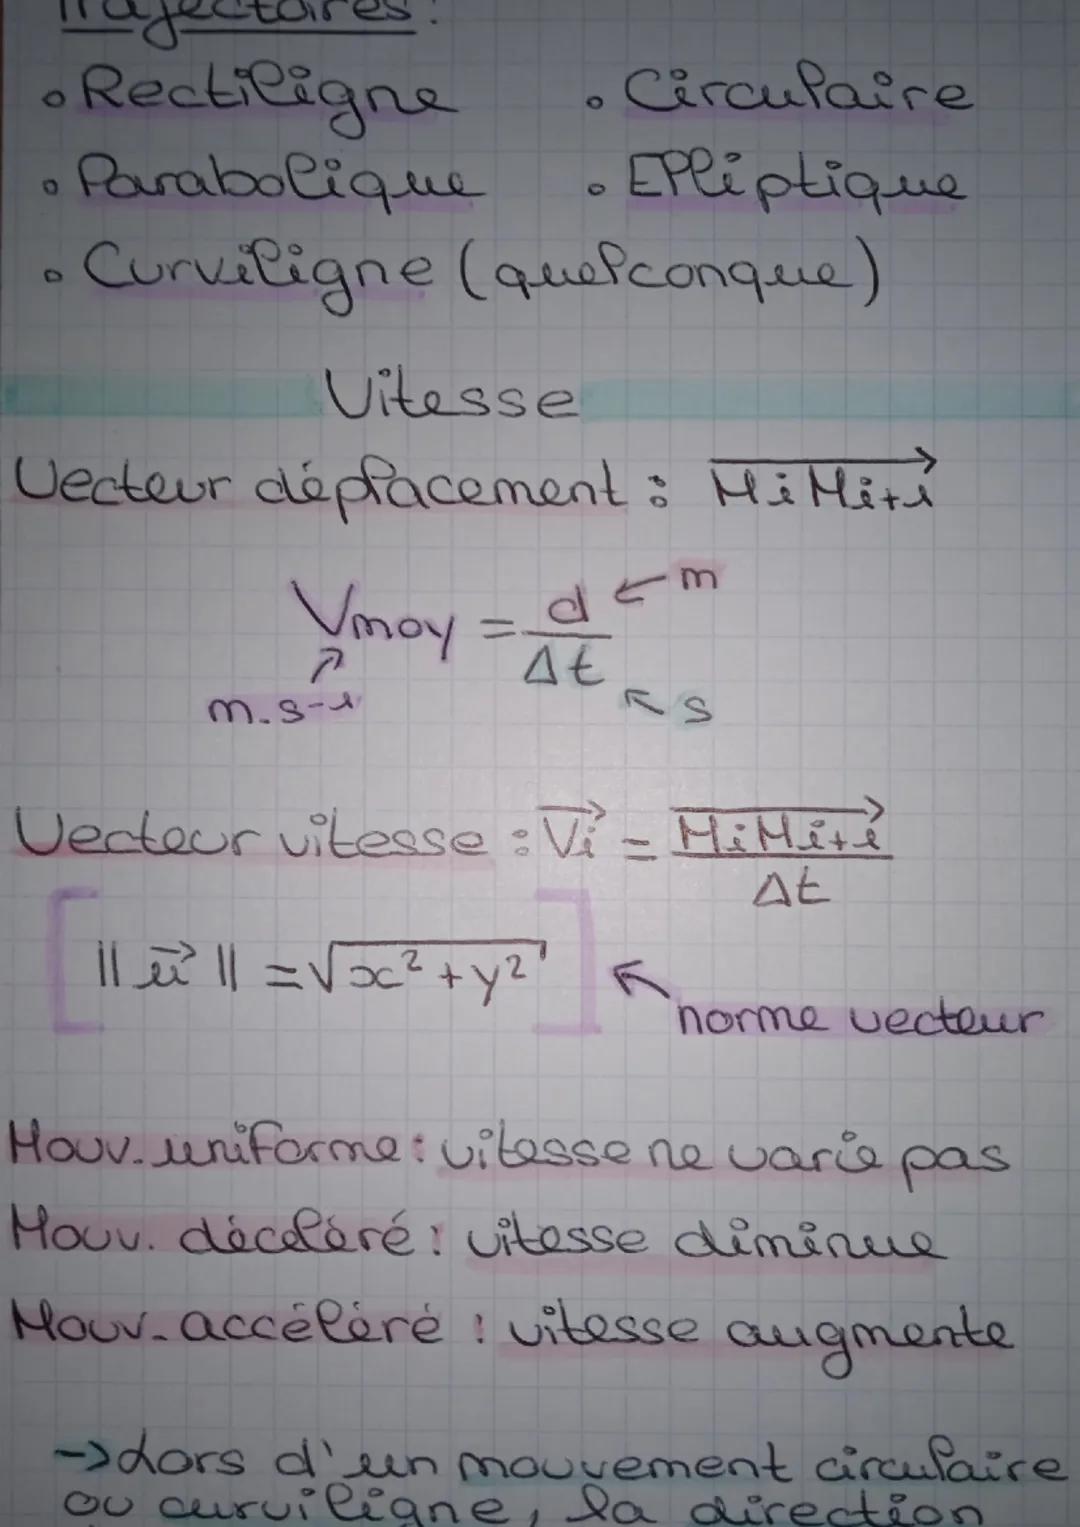 Trajectoires:
• Rectiligne • Circulaire
• Parabolique • Elliptique
• Curviligne (quelconque)
Vitesse
Vecteur déplacement : $\overrightarrow{M_iM_{i+1}}$
Vmoy = d/Δt ← m
m.s-1 ↖ s
Vecteur vitesse : $\overrightarrow{V_i}$ = $\overrightarrow{M_iM_{i+1}}$/Δt
[||$\vec{u}$|| = √x²+y²] ↖
norme vecteur
Mouv. uniforme : vitesse ne varie pas
Mouv. décéléré : vitesse diminue
Mouv. accéléré : vitesse augmente
->Lors d'un mouvement circulaire
ou curviligne, la direction